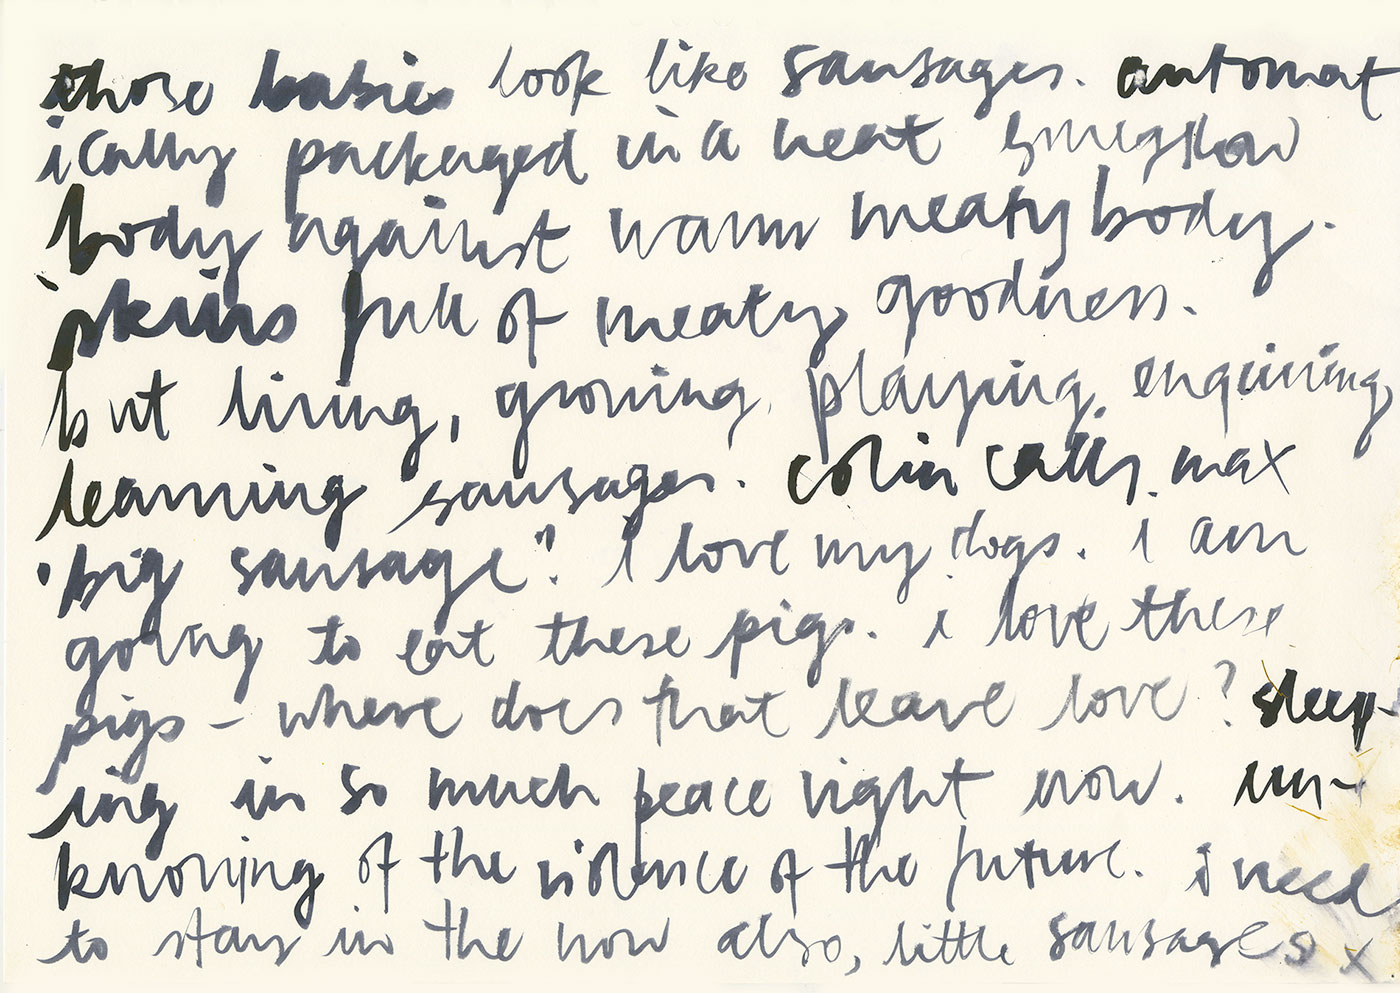 those babies look like sausages. automat
ically packaged in a neat row
body against warm meaty body.
skins full of meaty goodness.
but living, growing, playing, enquiring
learning sausages. colin calls max
"big sausage". i love my dogs. i am
going to eat these pigs. i love these
pigs – where does that leave love? sleep-
ing in so much peace right now. un-
knowing of the violence of the future. i need
to stay in the now also, little sausages x